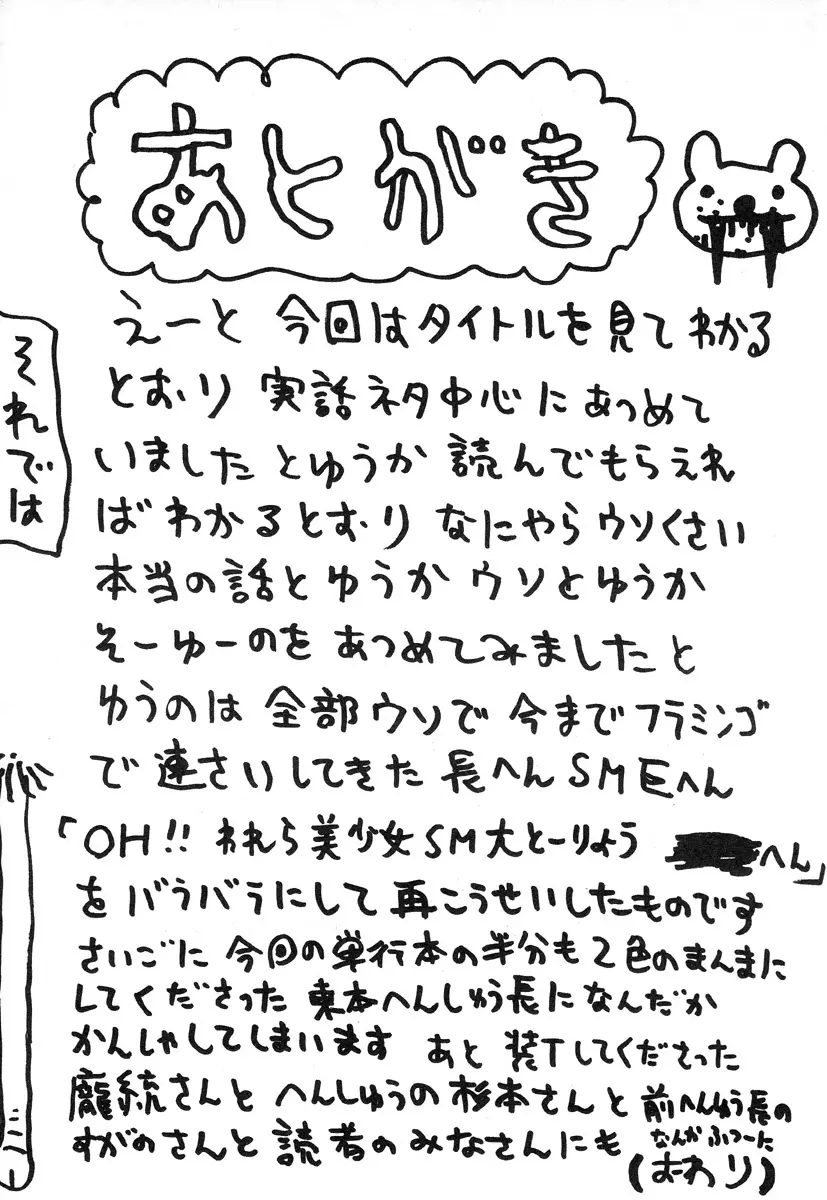 あとがき
えーと 今回はタイトルを見てわかる
とおり 実話ネタ中心にあつめて
いました とゆうか 読んでもらえれ
ば わかるとおり なにやら ウソくさい
本当の話とゆうか ウソとゆうか
そーゆーのを あつめてみましたと
ゆうのは 全部ウソで 今までフラミンゴ
で 連さいしてきた 長へんSM巨へん
「OH!! われら美少女SM大とーりょう へん」
を バラバラにして 再こうせいしたものです
さいごに 今回の単行本の半分も2色のまんまに
してくださった 東本へんしゅう長に なんだか
かんしゃしてしまいます あと 装丁してくださった
龐統さんと へんしゅうの杉本さんと 前へんしゅう長の
すがのさんと 読者のみなさんにも なんかふつーに
(おわり)
それでは